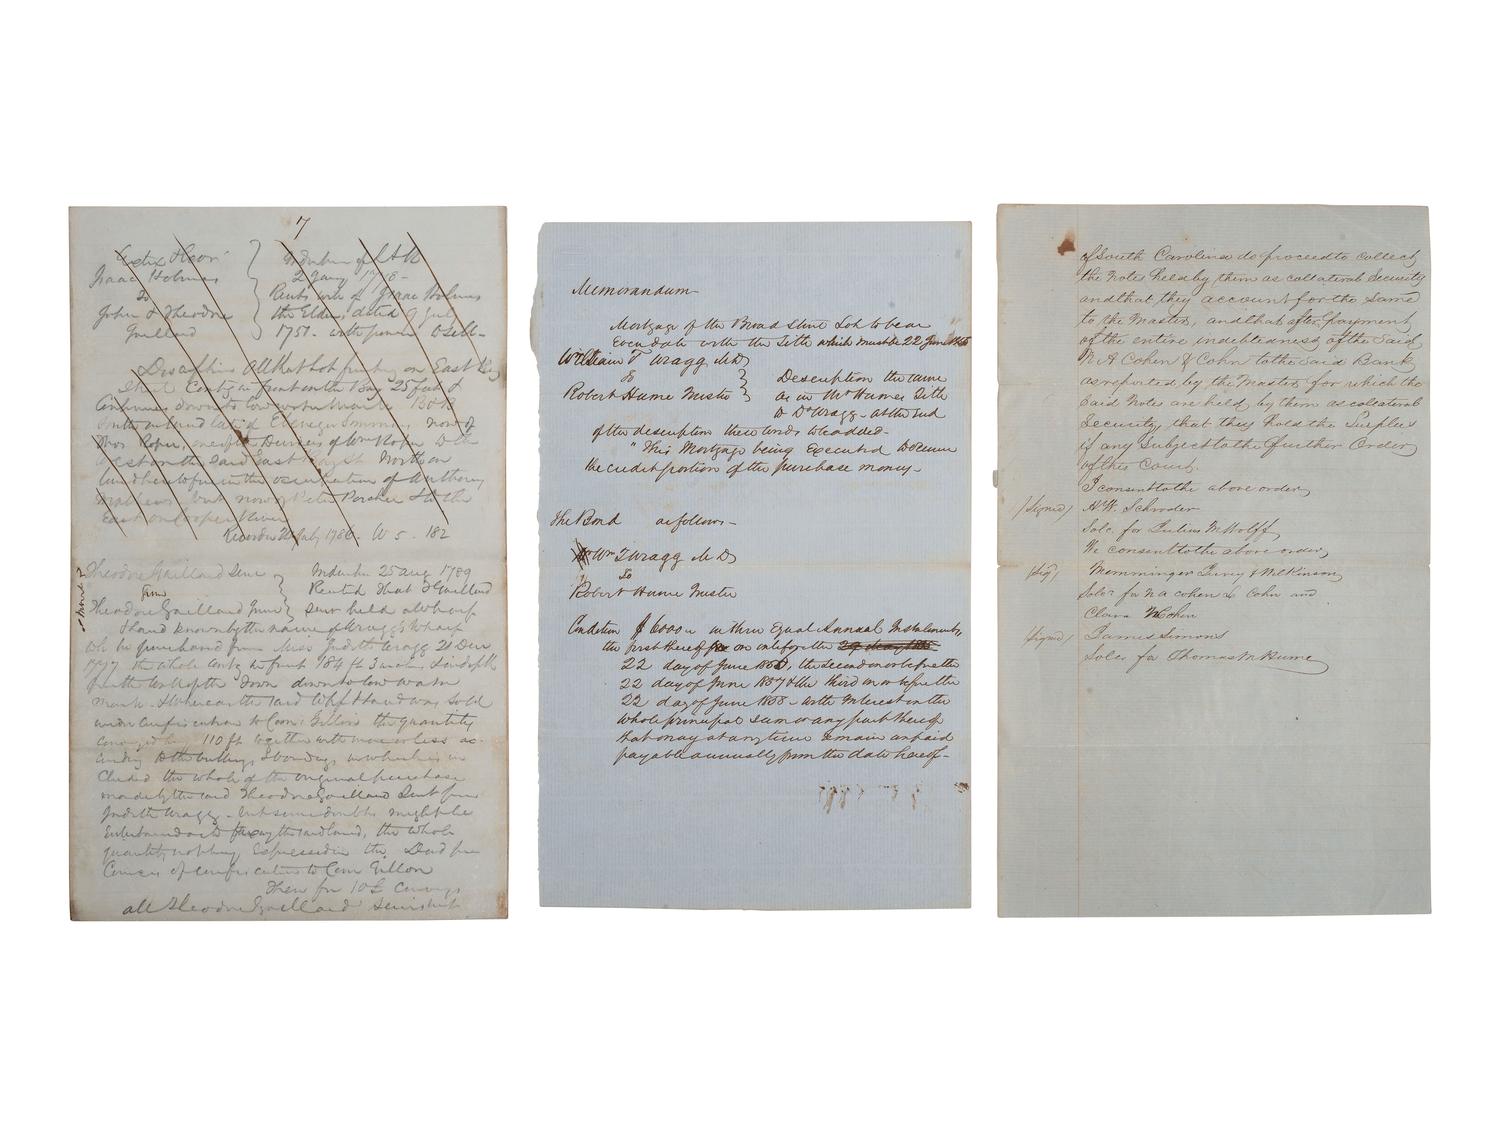 7
Isaac Holmes
to
John & Theodore
Gaillard
Indenture of L & R
2 Jany 17
Recites will of Isaac Holmes
the Elder, dated 9 July
1751 - with power to sell -
Describes All that Lot fronting on East Bay
Street Contg in front on the Bay 25 feet &
Continues down to low water mark B on
now of
Thos Roper, one of the Devisees of Wm Roper
West on the said East Bay St North on
in the occupation of Anthony
but now of Peter Porcher & to the
East on Cooper River
Recorded July 1786. W 5. 182
Theodore Gaillard Senr
from
Theodore Gaillard Junr
Indenture 25 Aug 1789
Recited That T Gaillard
Senr held a Wharf
& land known by the name of Wragg's Wharf
wh he purchased from Miss Judith Wragg 21 Dec
the whole contg in front 184 ft 3 inches
down to low water
mark - & Whereas the said Whf & land was sold
under confiscation to Com: Gillon the quantity
110 ft together with more or less ac-
cording to the buttings & boundings
cluded the whole of the original purchase
made by the said Theodore Gaillard Senr from
Judith Wragg - but some doubts might be
Entertained as to the said land, the whole
quantity not being Expressed in the Deed from
Comrs of confiscation to Com Gillon
Then for 10£ Conveys
all Theodore Gaillard Senr's
Memorandum
Mortgage of the Broad Street Lot to bear
Even date with the title which must be 22 June
William T Wragg M D
to
Robert Hume Master
Description the same
as in Mr Hume's title
to Dr Wragg - at the end
of the description these words to be added -
"This Mortgage being Executed to secure
the credit portion of the purchase money -
The Bond as follows -
Wm T Wragg M D
to
Robert Hume Master
Condition $6000 in three Equal Annual Instalments,
the first thereof on or before the
22 day of June, the second on or before the
22 day of June 1857 & the third on or before the
22 day of June 1858 - with Interest on the
whole principal sum or any part thereof
that may at any time remain unpaid
payable annually from the date hereof -
of South Carolina do proceed to collect
the Notes held by them as collateral Security
and that they account for the same
to the Master, and that after payment
of the entire indebtedness of the Said
N. A Cohen & Cohn to the Said Bank
as reported by the Master, for which the
Said Notes are held by them as collateral
Security, that they hold the Surplus
if any Subject to the further Order
of this Court.
I consent to the above order,
(Signed) H. W. Schroder
Solr. for Julius M Wolff
We consent to the above order,
(Sig) Memminger Jervey & Wilkinson
Solrs for N A Cohen & Cohn and
Clara Cohen
(Signed) James Simons
Solr for Thomas M Hume